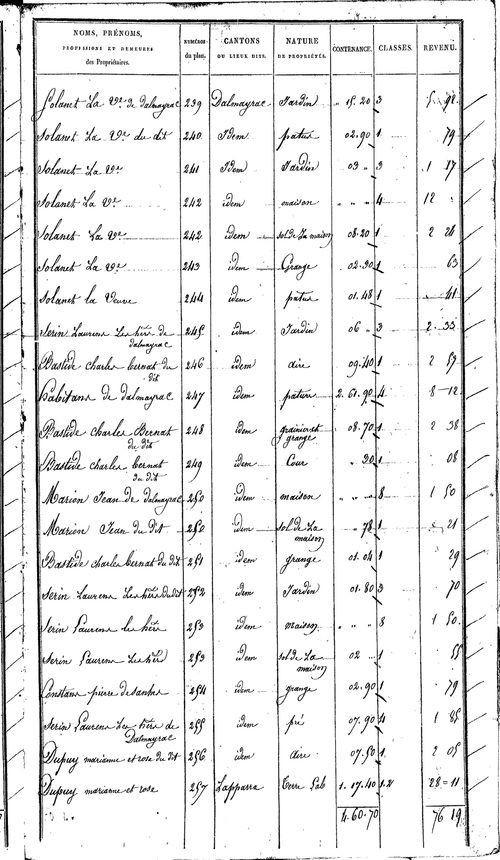 NOMS, PRÉNOMS, PROFESSIONS ET DEMEURES des Propriétaires. NUMÉROS du plan. CANTONS OU LIEUX DITS. NATURE DE PROPRIÉTÉS. CONTENANCE. CLASSES. REVENU.
Solanet La Ve de Dalmayrac 239 Dalmayrac Jardin " 15. 20 3 5 92
Solanet La Ve du dit 240 Idem patus 02. 90 1 79
Solanet La Ve 241 Idem Jardin 03 " 3 1 17
Solanet La Ve 242 idem maison " " " 4 12 "
Solanet La Ve 242 idem sol de La maison 08. 20 1 2 26
Solanet La Ve 243 idem Grange 02. 30 1 63
Solanet la Veuve 244 idem patus 01. 48 1 41
Serin Laurens Les hers de dalmayrac 245 idem Jardin 06 " 3 2 33
Bastide charles bernat du dit 246 idem aire 09. 40 1 2 57
habitans de dalmayrac 247 idem pature 2. 61. 90 4 8 12
Bastide charles Bernat du dit 248 idem grainier et grange 08. 70 1 2 38
Bastide charles bernat du dit 249 idem Cour " 30 1 08
Marion Jean de dalmayrac 250 idem maison " " " 8 1 50
Marion Jean du dit 250 idem sol de La maison " 78 1 21
Bastide charles bernat du dit 251 idem grange 01. 04 1 29
Serin Laurens Les hers du dit 252 idem Jardin 01. 80 3 70
Serin Laurens les hers 253 idem maison " " " 8 1 50
Serin Laurens Les hers 253 idem sol de La maison 02 " 1 55
Constans pierre de 254 idem grange 02. 90 1 79
Serin Laurens Les hers de Dalmayrac 255 idem pré 07. 90 4 1 85
Dupuy marianne et rose du dit 256 idem aire 07. 50 1 2 05
Dupuy marianne et rose 257 Lapparra Terre Lab 1. 17. 40 1.2 28 11
4. 60. 70 76 19